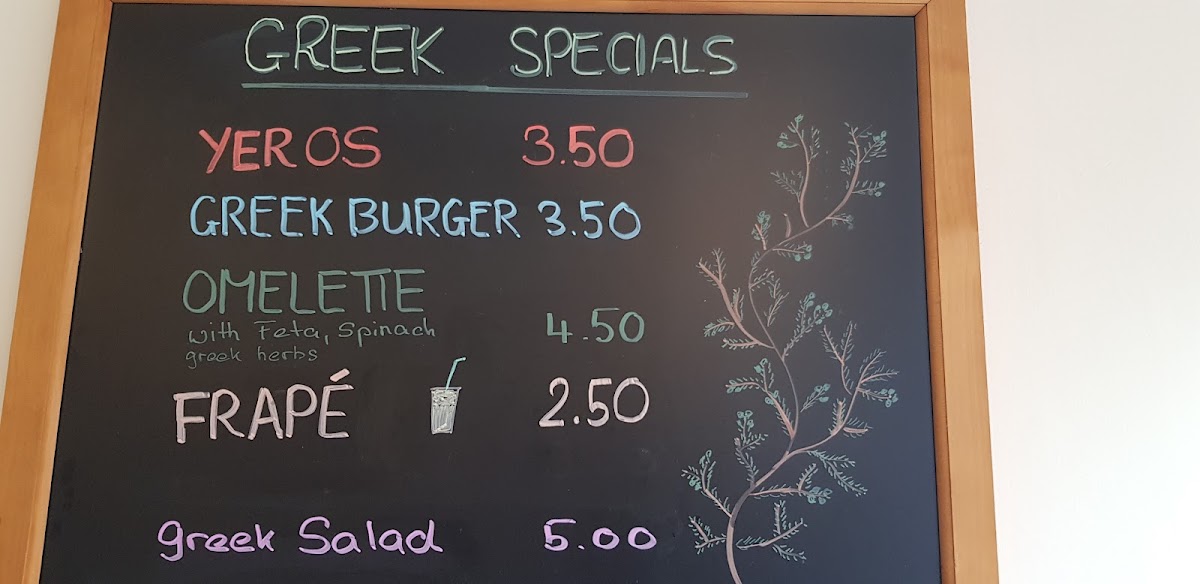 GREEK SPECIALS
YEROS 3.50
GREEK BURGER 3.50
OMELETTE
with Feta, Spinach 4.50
greek herbs
FRAPÉ 2.50
greek Salad 5.00